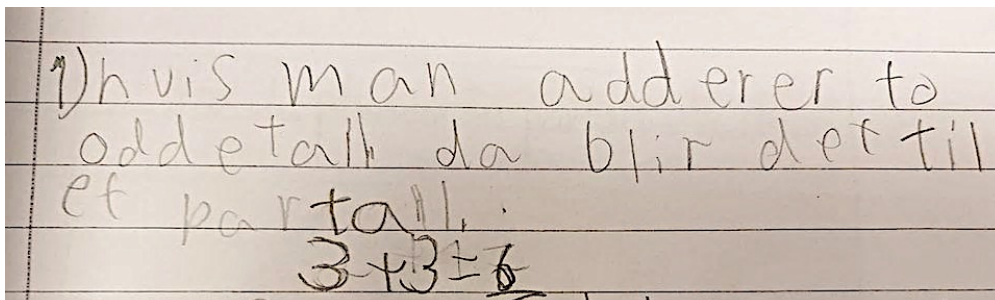 1) hvis man adderer to
oddetall da blir det til
et partall.
3+3=6